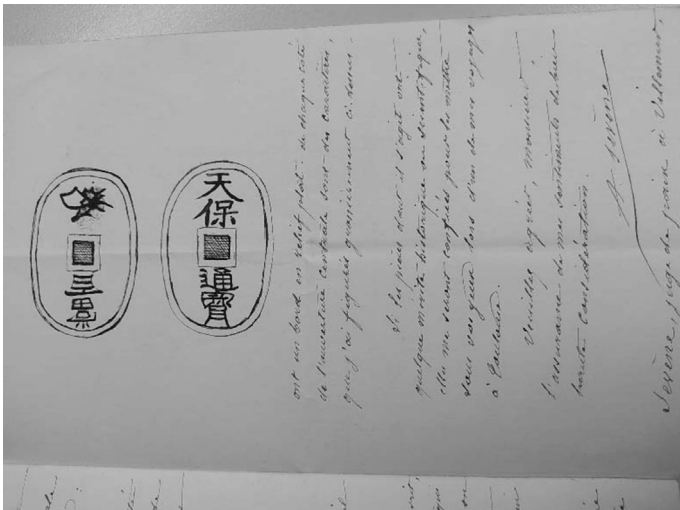 天保
通寶
ont un bord en relief plat. de chaque côté
de l'ouverture centrale sont des caractères,
que j'ai figurés grossièrement ci-dessus.
Si les pièces dont il s'agit ont
quelque mérite historique ou scientifique,
elles me seront confiées pour les mettre
sous vos yeux lors d'un de mes voyages
à Toulouse.
Veuillez agréer, Monsieur
l'assurance de mes sentiments de bien
haute considération.
A. Sévène
Sévène, juge de paix à Villemur,